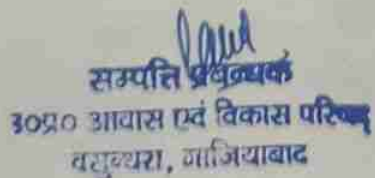 सम्पत्ति प्रबन्धक
उ०प्र० आवास एवं विकास परिषद
वसुन्धरा, गाजियाबाद